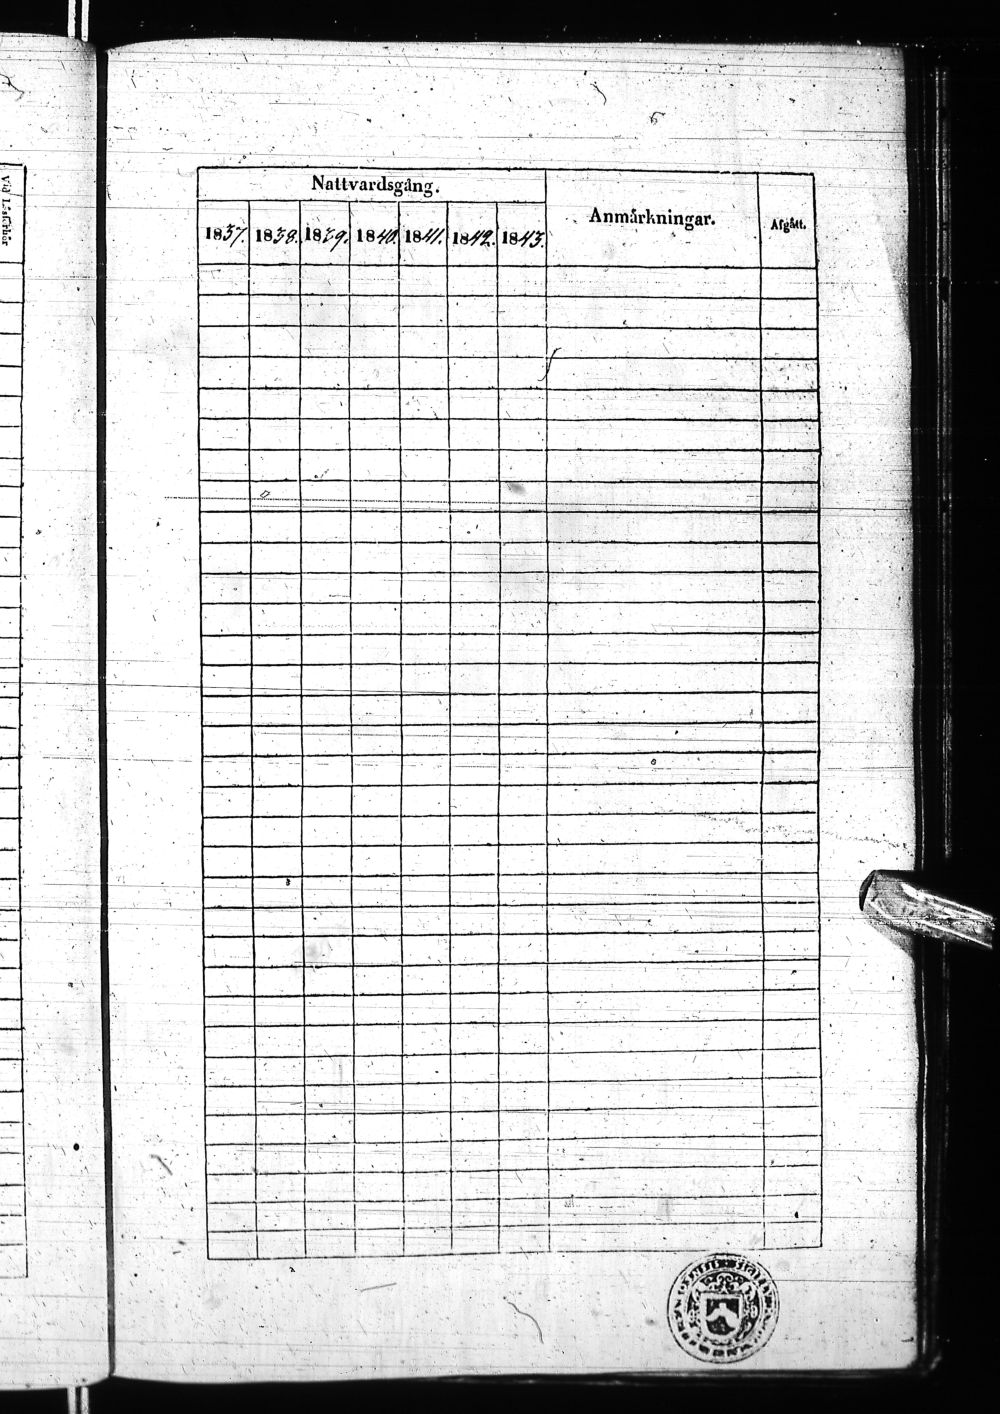 Vid Läsförhör
Nattvardsgång.
Anmärkningar.
Afgått.
1837. 1838. 1839. 1840. 1841. 1842. 1843.